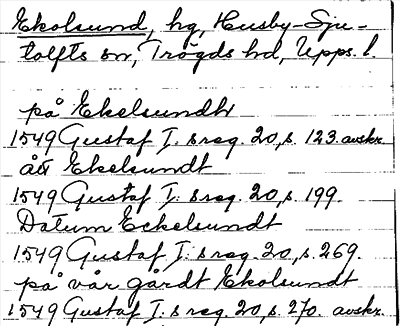 Ekolsund, hg, Husby-Sju-
tolfts sn, Trögds hd, Upps. l.
på Ekelsundh
1549 Gustaf I:s reg. 20, s. 123. avskr.
åt Ekelsundt
1549 Gustaf I:s reg. 20, s. 199.
Datum Eckelsundt
1549 Gustaf I:s reg. 20, s. 269.
på vår gårdt Ekolsundt
1549 Gustaf I:s reg. 20, s. 270. avskr.